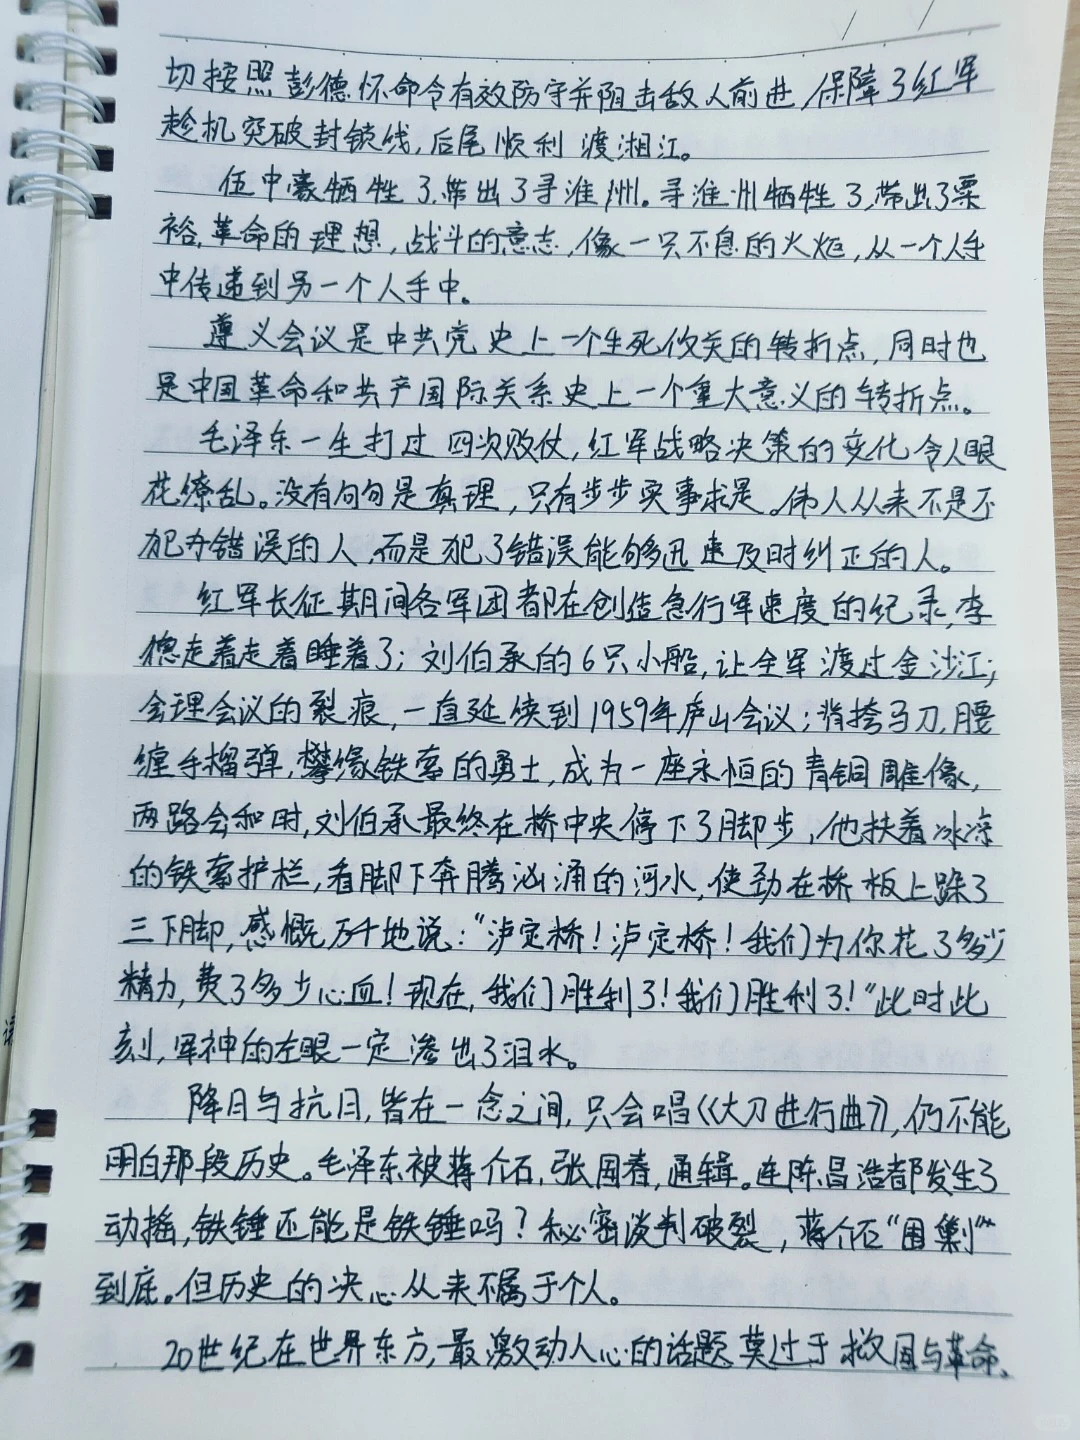 切按照彭德怀命令有效防守并阻击敌人前进,保障了红军
趁机突破封锁线,后尾顺利渡湘江。
伍中豪牺牲了,带出了寻淮州。寻淮州牺牲了,带出了粟
裕,革命的理想,战斗的意志,像一只不息的火炬,从一个人手
中传递到另一个人手中。
遵义会议是中共党史上一个生死攸关的转折点,同时也
是中国革命和共产国际关系史上一个重大意义的转折点。
毛泽东一生打过四次败仗,红军战略决策的变化令人眼
花缭乱。没有句句是真理,只有步步实事求是。伟人从来不是不
犯错误的人,而是犯了错误能够迅速及时纠正的人。
红军长征期间各军团都在创造急行军速度的纪录,李
德走着走着睡着了;刘伯承的6只小船,让全军渡过金沙江;
会理会议的裂痕,一直延续到1959年庐山会议;背挎马刀,腰
缠手榴弹,攀缘铁索的勇士,成为一座永恒的青铜雕像,
两路会和时,刘伯承最终在桥中央停下了脚步,他扶着冰凉
的铁索护栏,看脚下奔腾汹涌的河水,使劲在桥板上跺了
三下脚,感慨万千地说:“泸定桥!泸定桥!我们为你花了多少
精力,费了多少心血!现在,我们胜利了!我们胜利了!”此时此
刻,军神的左眼一定渗出了泪水。
降日与抗日,皆在一念之间,只会唱《大刀进行曲》,仍不能
明白那段历史。毛泽东被蒋介石,张国春,通辑。连陈昌浩都发生了
动摇,铁锤还能是铁锤吗?秘密谈判破裂,蒋介石“围剿”
到底。但历史的决心从来不属于个人。
20世纪在世界东方,最激动人心的话题莫过于救国与革命、